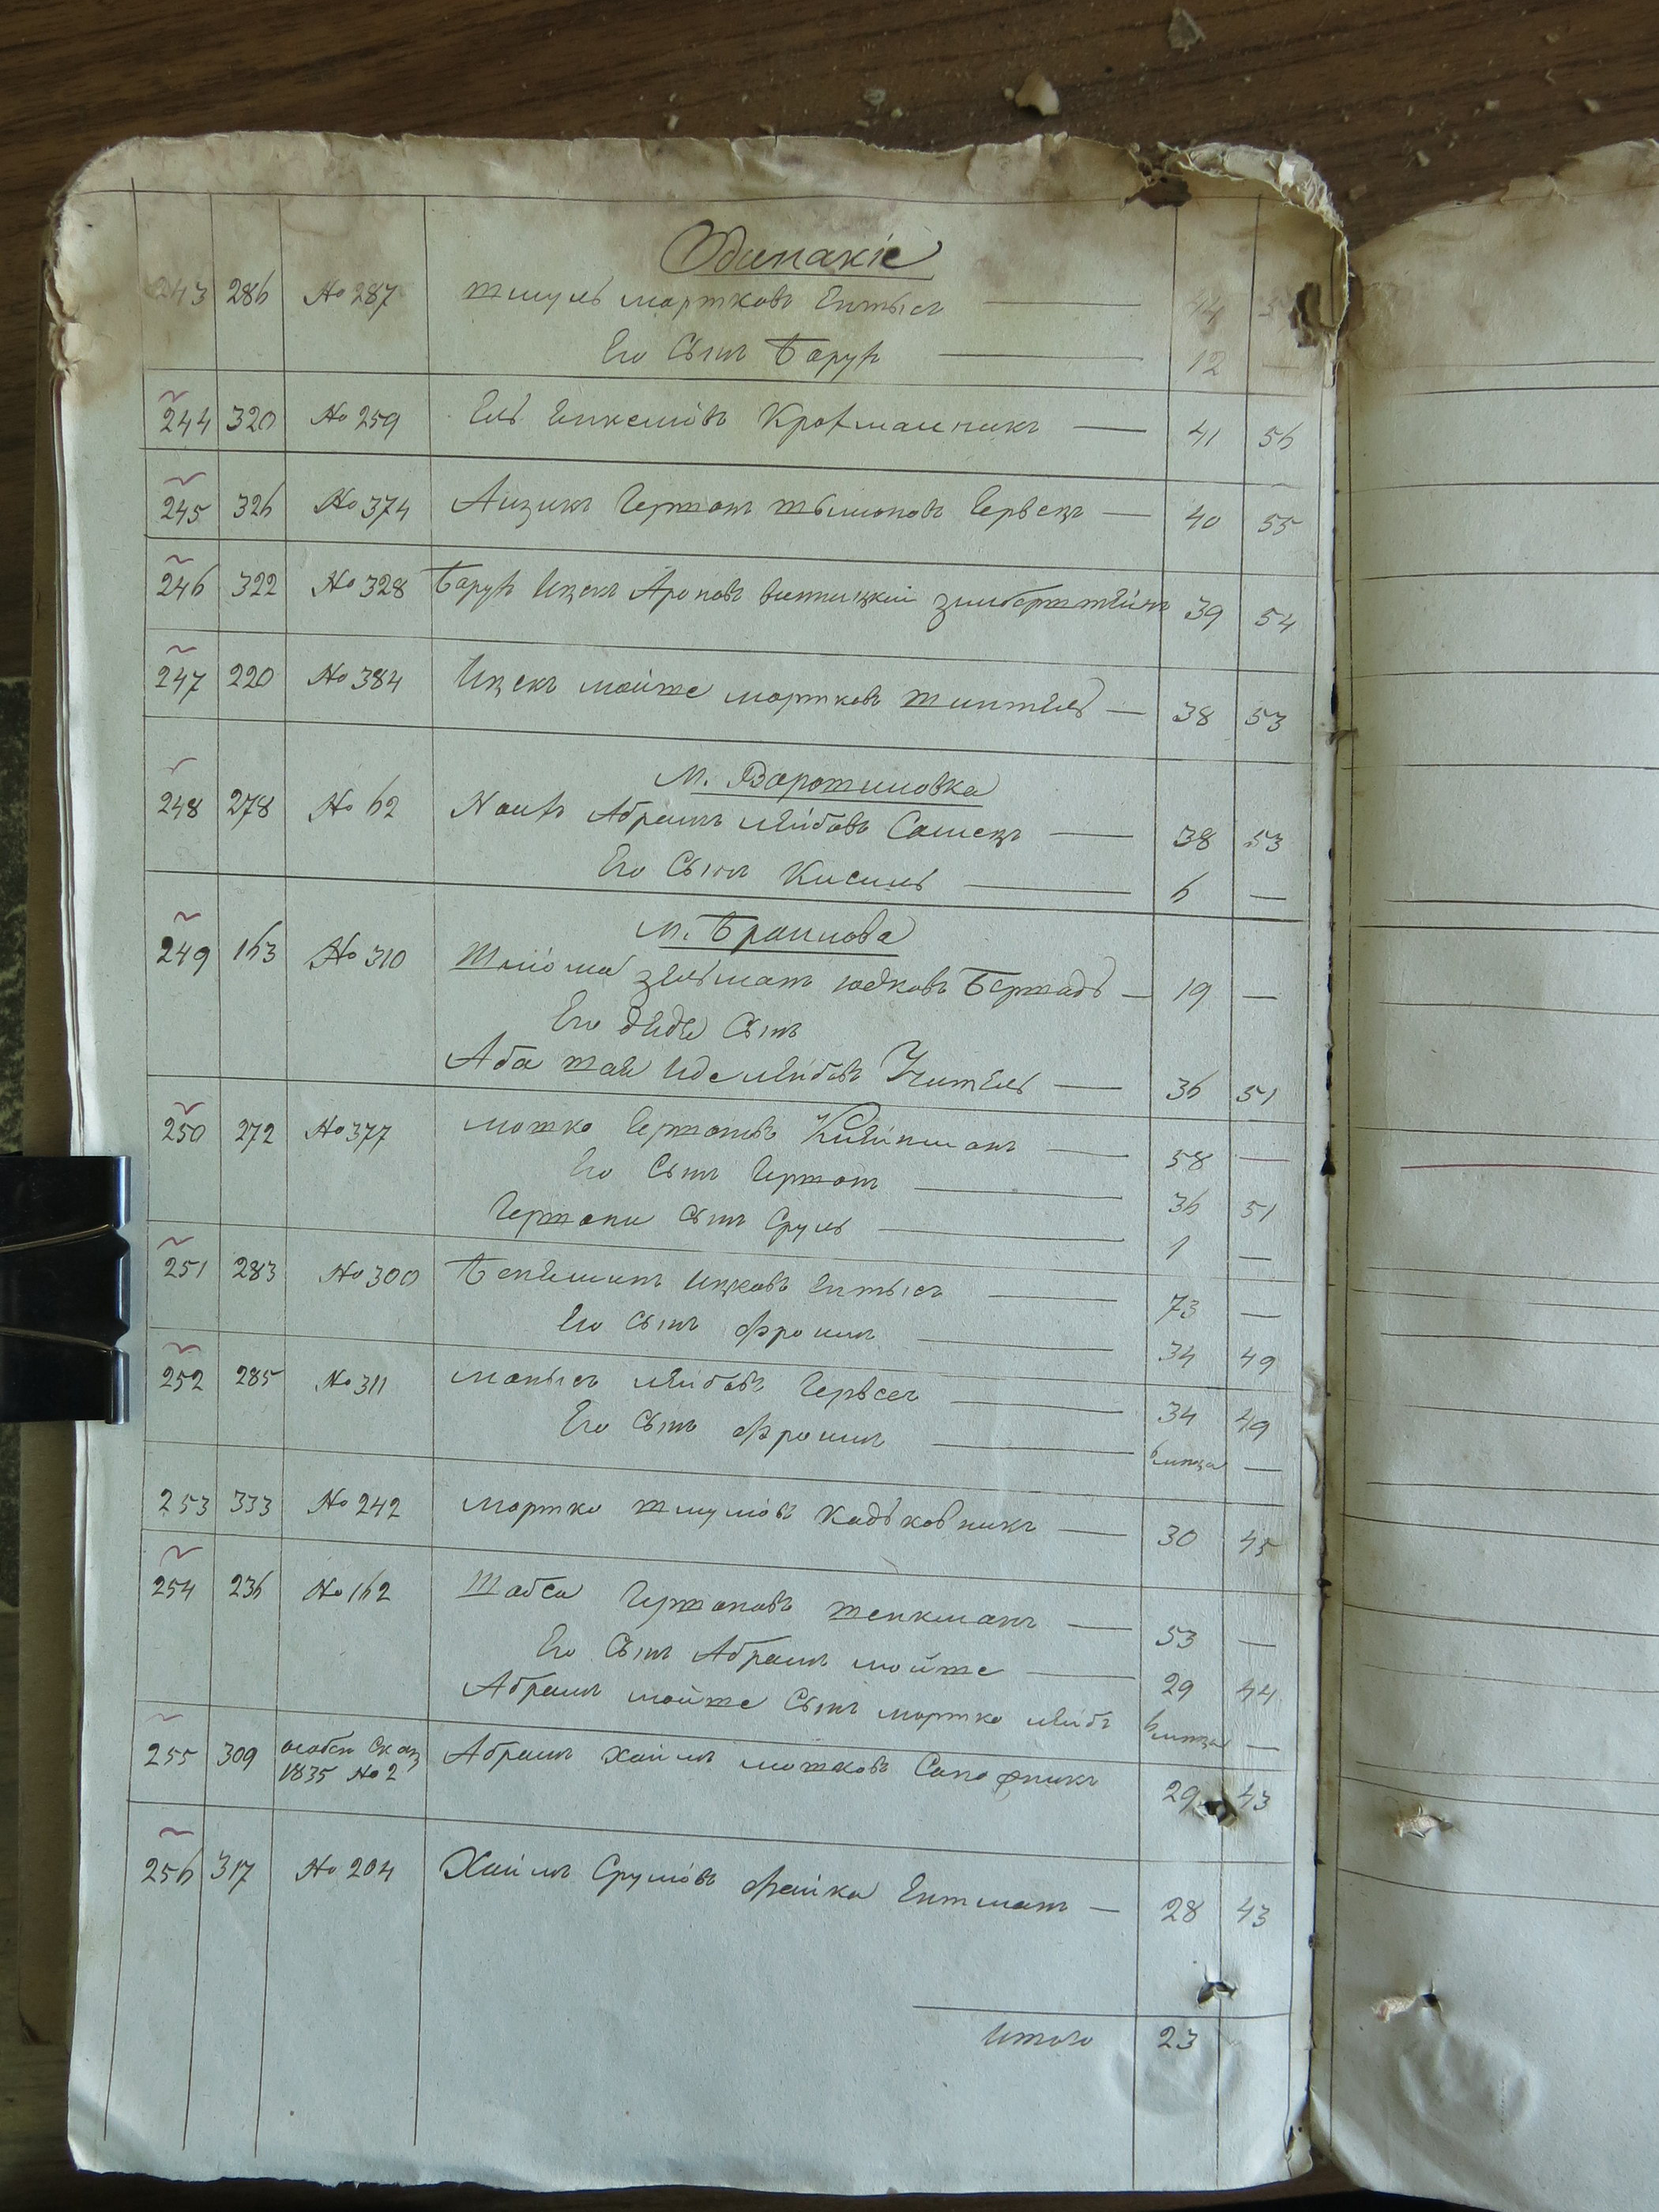 Одинакіе
243 286 № 287 Шмуль Мортковъ Ентысъ 44
Его Сынъ Барухъ 12 —
244 320 № 259 Ель Енкелiовъ Крохмальникъ — 41 56
245 326 № 374 Аизикъ Гершонъ Шлiомовъ — 40 55
246 322 № 328 Барухъ Ицекъ Ароновъ Винницкiй Зильберштейнъ 39 54
247 220 № 384 Ицекъ Мойше Мортковъ — 38 53
М. Ворошиловка
248 278 № 62 Абрамъ Лейбовъ — 38 53
Его Сынъ Кисиль — 6 —
М. Браилова
249 163 № 310 Шлiома Зельманъ Юдковъ Бершадь — 19 —
Его дяди Сынъ
Аба Шая Иде Лейбовъ Учитель — 36 51
250 272 № 377 Мошко Гершоновъ Клейнманъ — 58 —
Его Сынъ Гершонъ — 36 51
Гершона Сынъ Сруль — 1 —
251 283 № 300 Бенямин Ицковъ Ентысъ — 73 —
Его Сынъ Фроимъ — 34 49
252 285 № 311 Манысъ Лейбовъ — 34 49
Его Сынъ Фроимъ — —
253 333 № 242 Мортко Шмулiовъ Кадьковникъ — 30 45
254 236 № 162 Шабса Гершоновъ Шенкманъ — 53 —
Его Сынъ Абрамъ Мойше — 29 44
Абрамъ Мойше Сынъ Мортко Лейбъ —
255 309 особен Сказ 1835 № 2 Абрамъ Хаимъ Мошковъ Сапожникъ 29 43
256 317 № 204 Хаимъ Срулiовъ Файка Ентманъ — 28 43
Итого 23